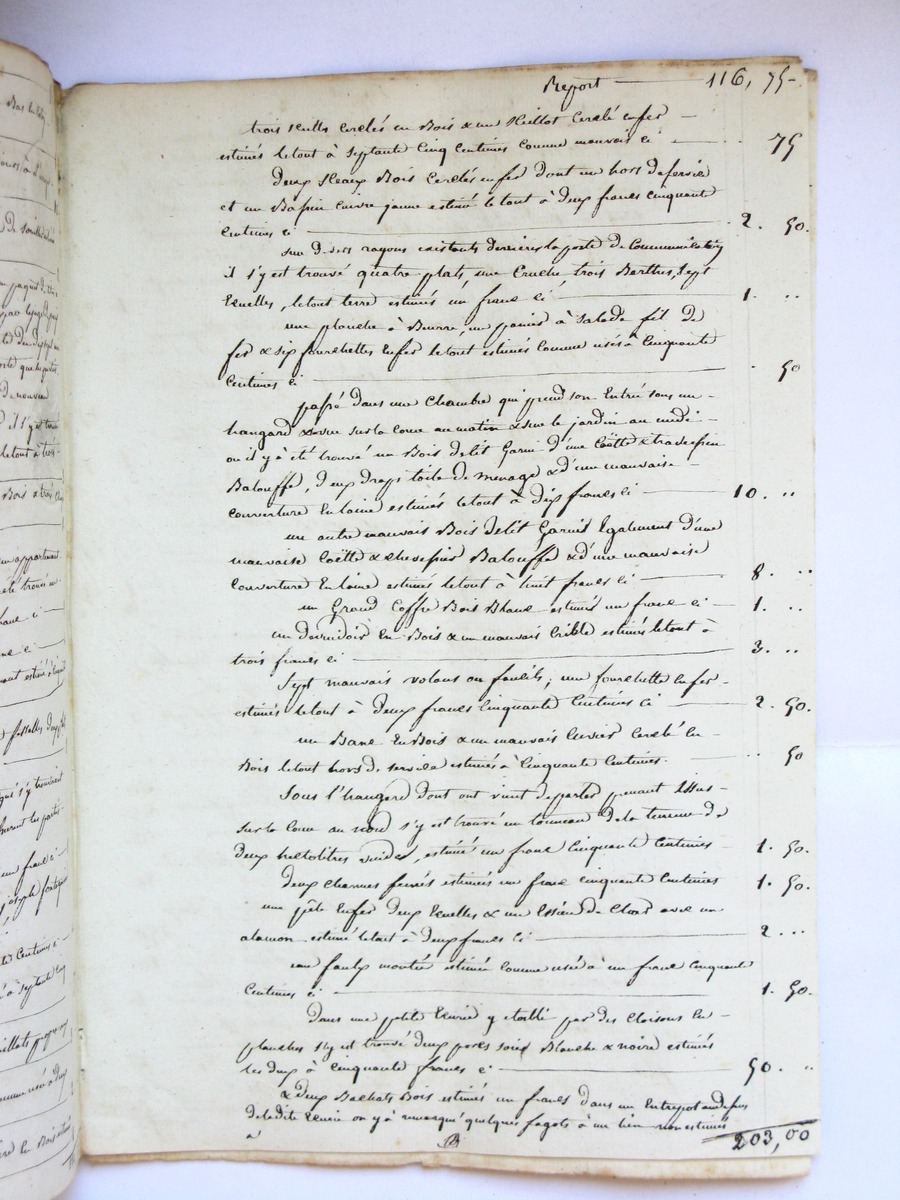 Report 116, 75
trois seilles cerclés en Bois & un Seillot Cerclé en fer
estimés letout à Septante Cinq Centimes comme mauvais ci 75
Deux Seaux Bois Cerclés en fer dont un hors deservice
et un Bassin cuivre jaune estimé letout à deux francs cinquante
Centimes ci 2. 50.
sur rayons existants derrière la porte de Communication
il s'y est trouvé quatre plats, une Cruche, trois Berthes, Sept
écuelles, letout terre estimés un franc ci 1. ..
une planche à Beurre, un panier à Salade fil de
fer & six fourchettes en fer letout estimés comme usés à Cinquante
Centimes ci 50
passé dans une Chambre qui prend son Entrée sous un
hangard & vue sur la Cour au matin & sur le jardin au midi
ou il y à été trouvé un Bois delit Garni d'une Coëtte & traversin
Balouffe, deux draps toile de menage & d'une mauvaise
couverture en laine estimés letout à dix francs ci 10. ..
un autre mauvais Bois delit Garnis Egalement d'une
mauvaise Coëtte & chevessier Balouffe & d'une mauvaise
Couverture en laine estimés letout à huit francs ci 8. ..
un Grand Coffre Bois Blanc estimés un franc ci 1. ..
un devuidoir en Bois & un mauvais Crible estimés letout à
trois francs ci 3. ..
Sept mauvais volans ou faucils; une fourchette en fer
estimés letout à deux francs Cinquante Centimes ci 2. 50.
un Banc en Bois & un mauvais Cuvier Cerclé en
Bois letout hors de service estimés à Cinquante Centimes. 50
Sous l'hangard dont ont vient deparler prenant Issue
sur la Cour au nord s'y est trouvé un tonneau de la teneure de
deux hectolitres vuide, estimé un franc Cinquante Centimes 1. 50.
deux charrues ferrés estimés un franc cinquante Centimes 1. 50.
une en fer deux & un de Char avec un
alamon estimé letout à deux francs ci 2 ...
une faulx montée estimée comme usée à un franc cinquante
Centimes ci 1. 50.
dans une petite Ecurie y établi par des Cloisons en
planches s'y est trouvé deux porcs soies Blanche & noire estimés
les deux à Cinquante francs ci 50. ..
& deux Bachats Bois estimés un franc dans un Entrepot audessus
deladite Ecurie on y à remarqué quelques fagots à un lien non estimés
à 203,00